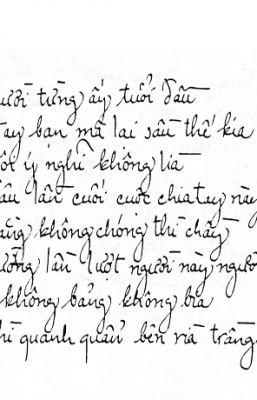 ười từng ấy tuổi đầu
tay bạn mà lại sầu thế kia
ột ý nghĩ không lìa
ầu lần cuối cuộc chia tay này
ẳng không chóng thì chầy
ường lần lượt người này ngườ
không bảng không bia
hỉ quanh quẩn bên rìa trăng